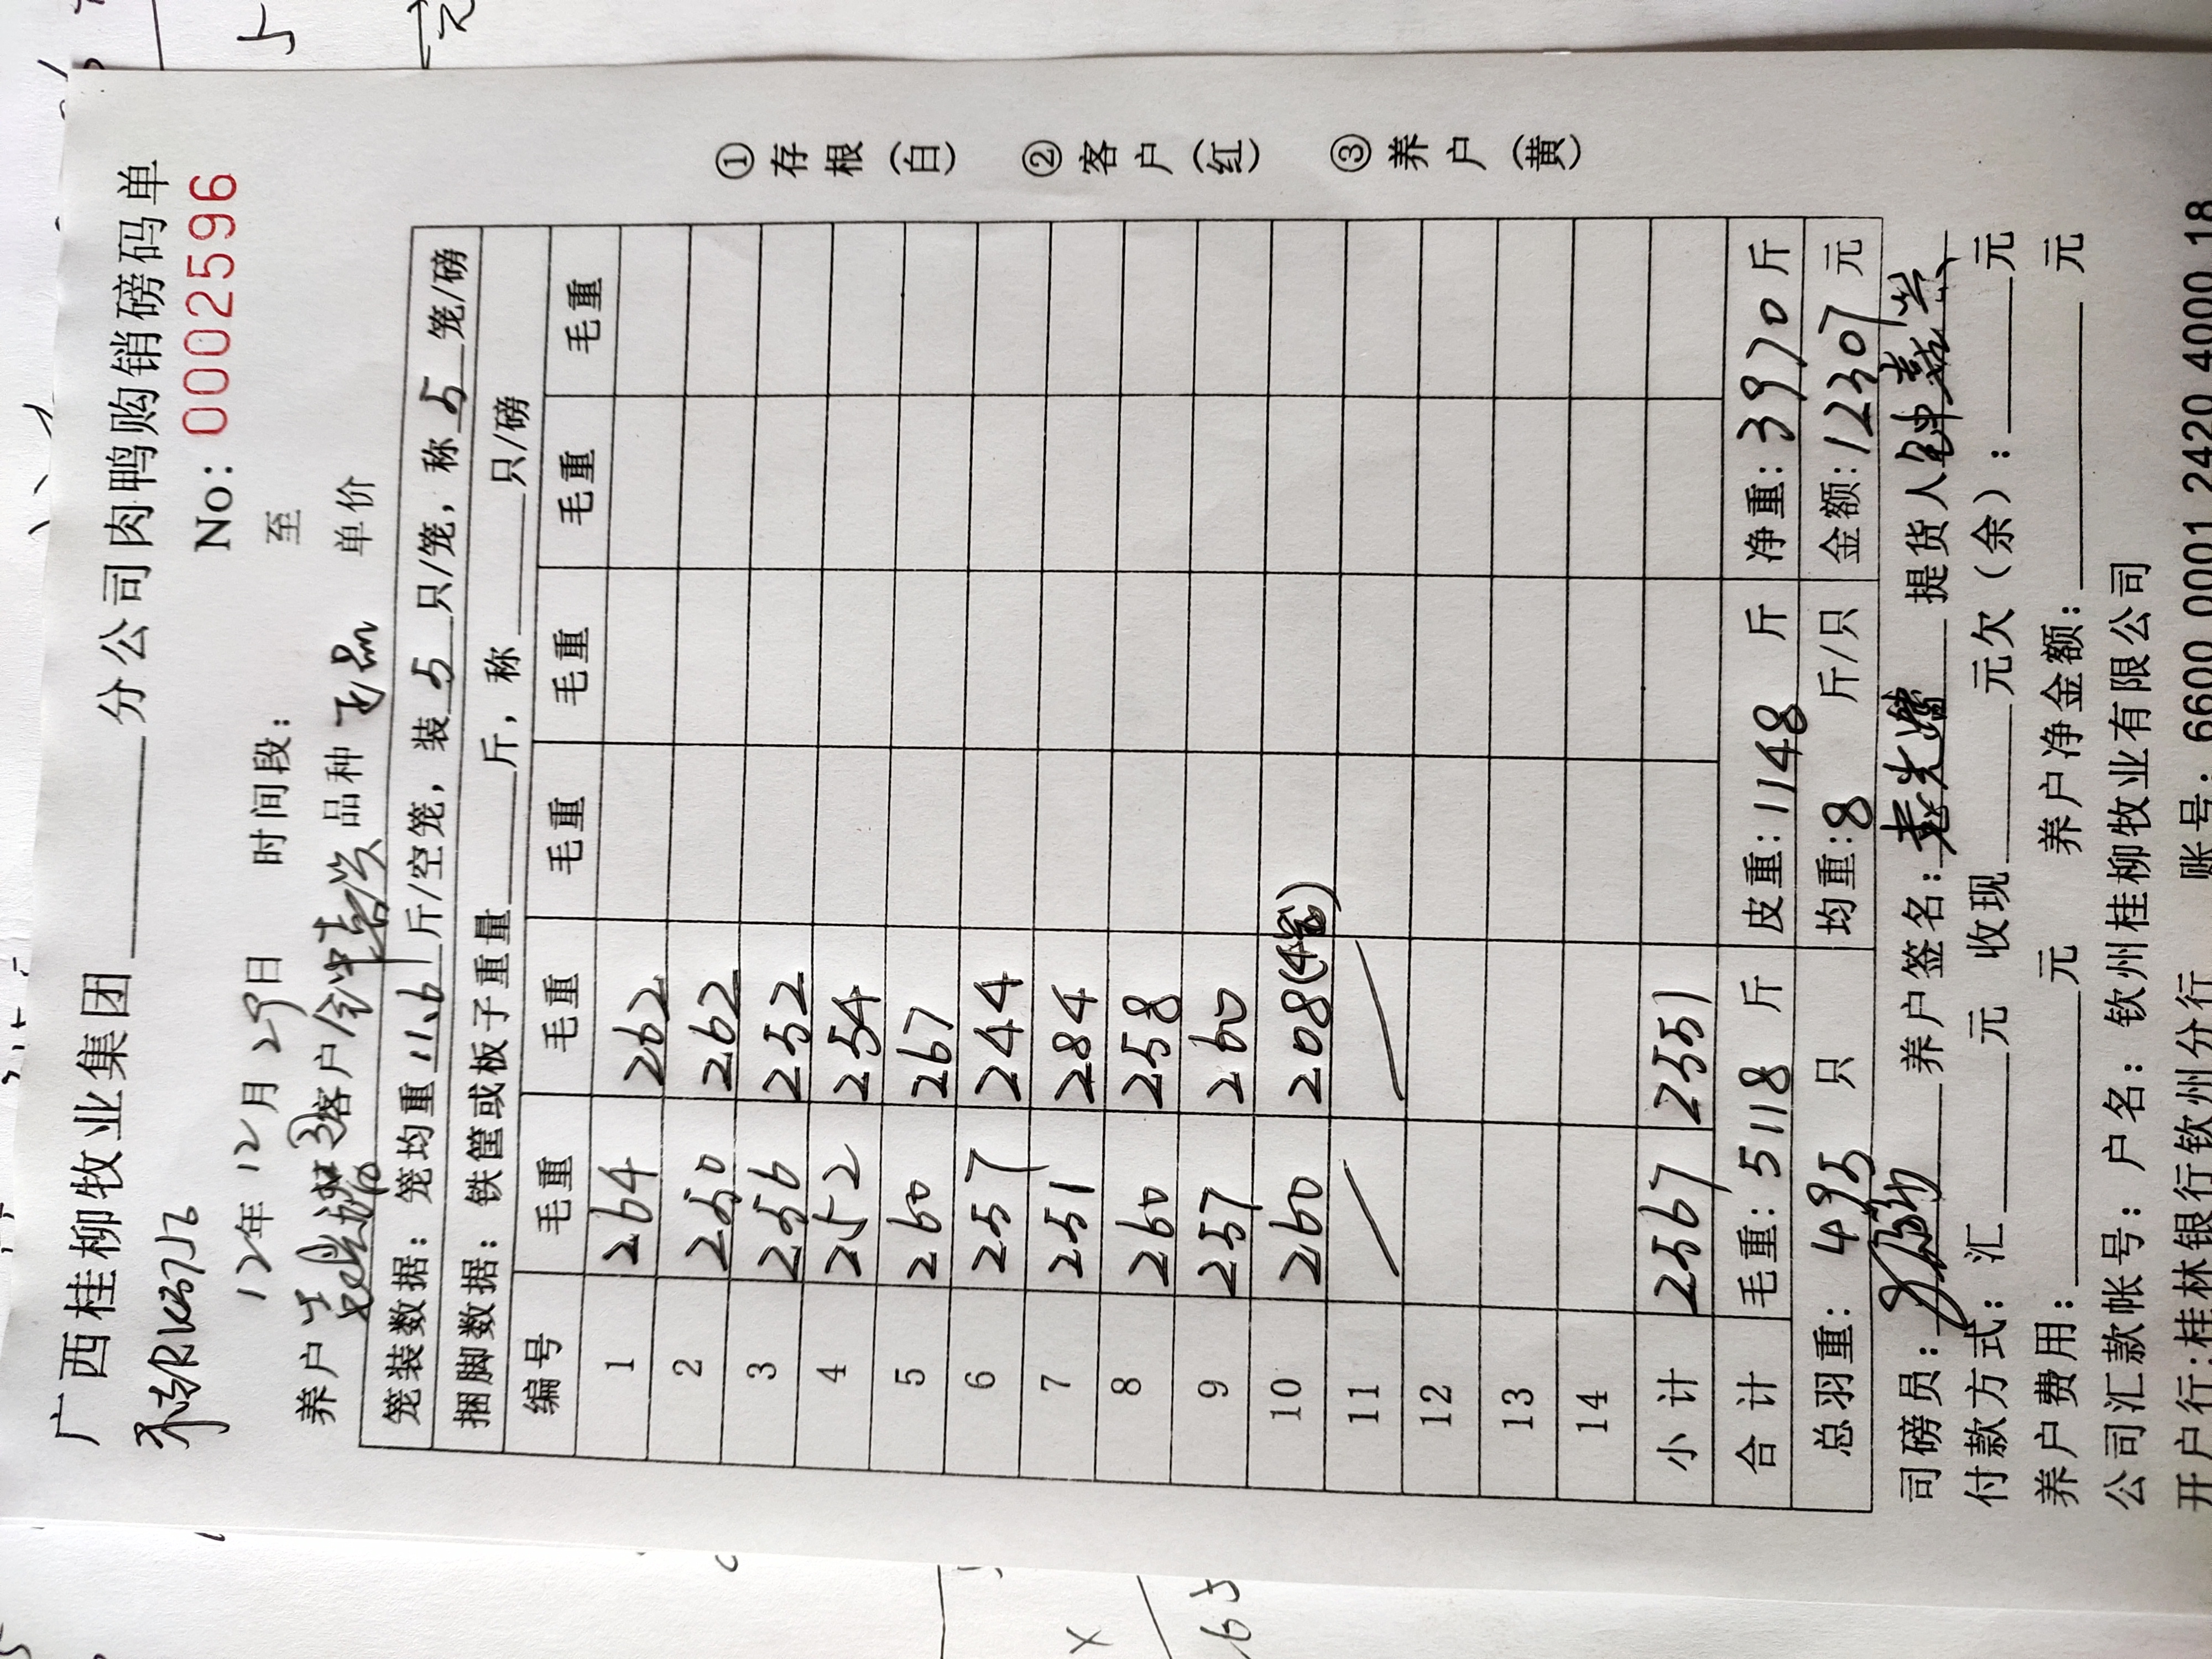 广西桂柳牧业集团______分公司肉鸭购销磅码单
No: 0002596
12年 12月 29日 时间段: 至
养户 客户 钟喜兴 品种 正品 单价
笼装数据: 笼均重 11.6 斤/空笼, 装 5 只/笼, 称 5 笼/磅
捆脚数据: 铁筐或板子重量______斤, 称______只/磅
编号 毛重 毛重 毛重 毛重 毛重 毛重
1 264 262
2 250 262
3 256 252
4 252 254
5 260 267
6 257 244
7 251 284
8 260 258
9 257 260
10 260 208(4笼)
11 / /
12
13
14
小计 2567 2551
合计 毛重: 5118 斤 皮重: 1148 斤 净重: 3970 斤
总羽重: 495 只 均重: 8 斤/只 金额: 12307 元
司磅员: 养户签名: 提货人 钟喜兴
付款方式: 汇______元 收现______元欠(余): ______元
养户费用: ______元 养户净金额: ______元
公司汇款帐号: 户名: 钦州桂柳牧业有限公司
开户行: 桂林银行钦州分行 账号: 6600 0001 2420 4000 18
①存根(白) ②客户(红) ③养户(黄)